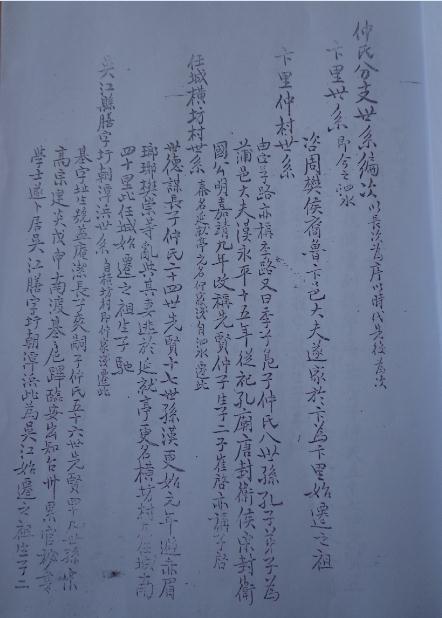 仲氏分支世系编次 以長幼為序以時代先後為次
卞里世系 即今之泗水
咨周樊侯裔魯卞邑大夫遂家於卞為卞里始遷之祖
卞里仲村世系
由字子路亦稱季路又曰季子 仲氏八世孫孔子弟子為
蒲邑大夫漢永平十五年從祀孔廟唐封衛侯宋封衛
國公明嘉靖九年改稱先賢仲子生子二子崔啓亦講子啓
任城横坊村世系 泰名延就亭 自泗水遷此
世德謀長子仲氏二十四世先賢十七世孫漢更始元年避赤眉
瑯琊樊崇等亂與其妻逃於延就亭更名横坊村 任城南
四十里此任城始遷之祖生子馳
吳江縣膳字圩朝潭洪世系 自横坊村即仲家淺遷此
基字 號 長子 嗣子仲氏五十六世先賢四十九世孫宋
高宗建炎戊申南渡基扈蹕臨安出知台州累官
學士遂卜居吳江膳字圩朝潭洪此為吳江始遷之祖生子二